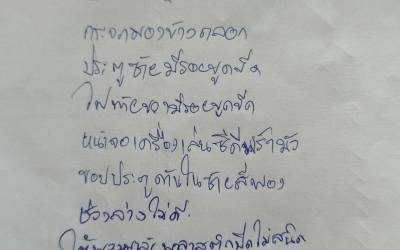 กระจกมองข้างถลอก
ประตูซ้ายมีรอยขูดขีด
ไฟท้ายขวามีรอยขูดขีด
หน้าจอเครื่องเล่นซีดีพร่ามัว
ขอบประตูด้านในซ้ายสีพอง
ช่วงล่างไม่ดี